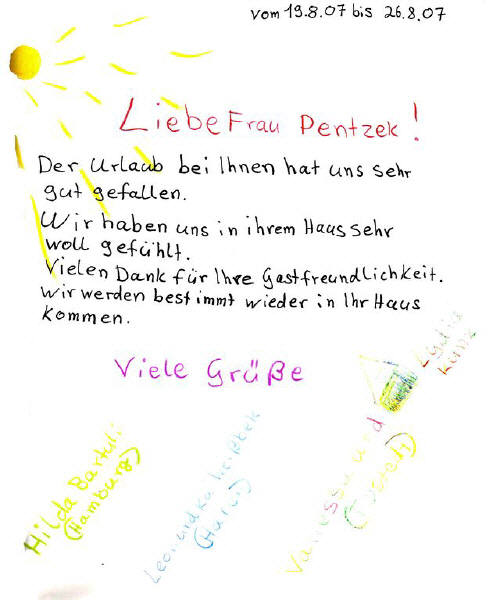 vom 19.8.07 bis 26.8.07
Liebe Frau Pentzek!
Der Urlaub bei Ihnen hat uns sehr
gut gefallen.
Wir haben uns in ihrem Haus sehr
woll gefühlt.
Vielen Dank für Ihre Gastfreundlichkeit.
Wir werden bestimmt wieder in Ihr Haus
kommen.
Viele Grüße
Hilda Bartuli
(Hamburg)
Vanessa und
Lydia